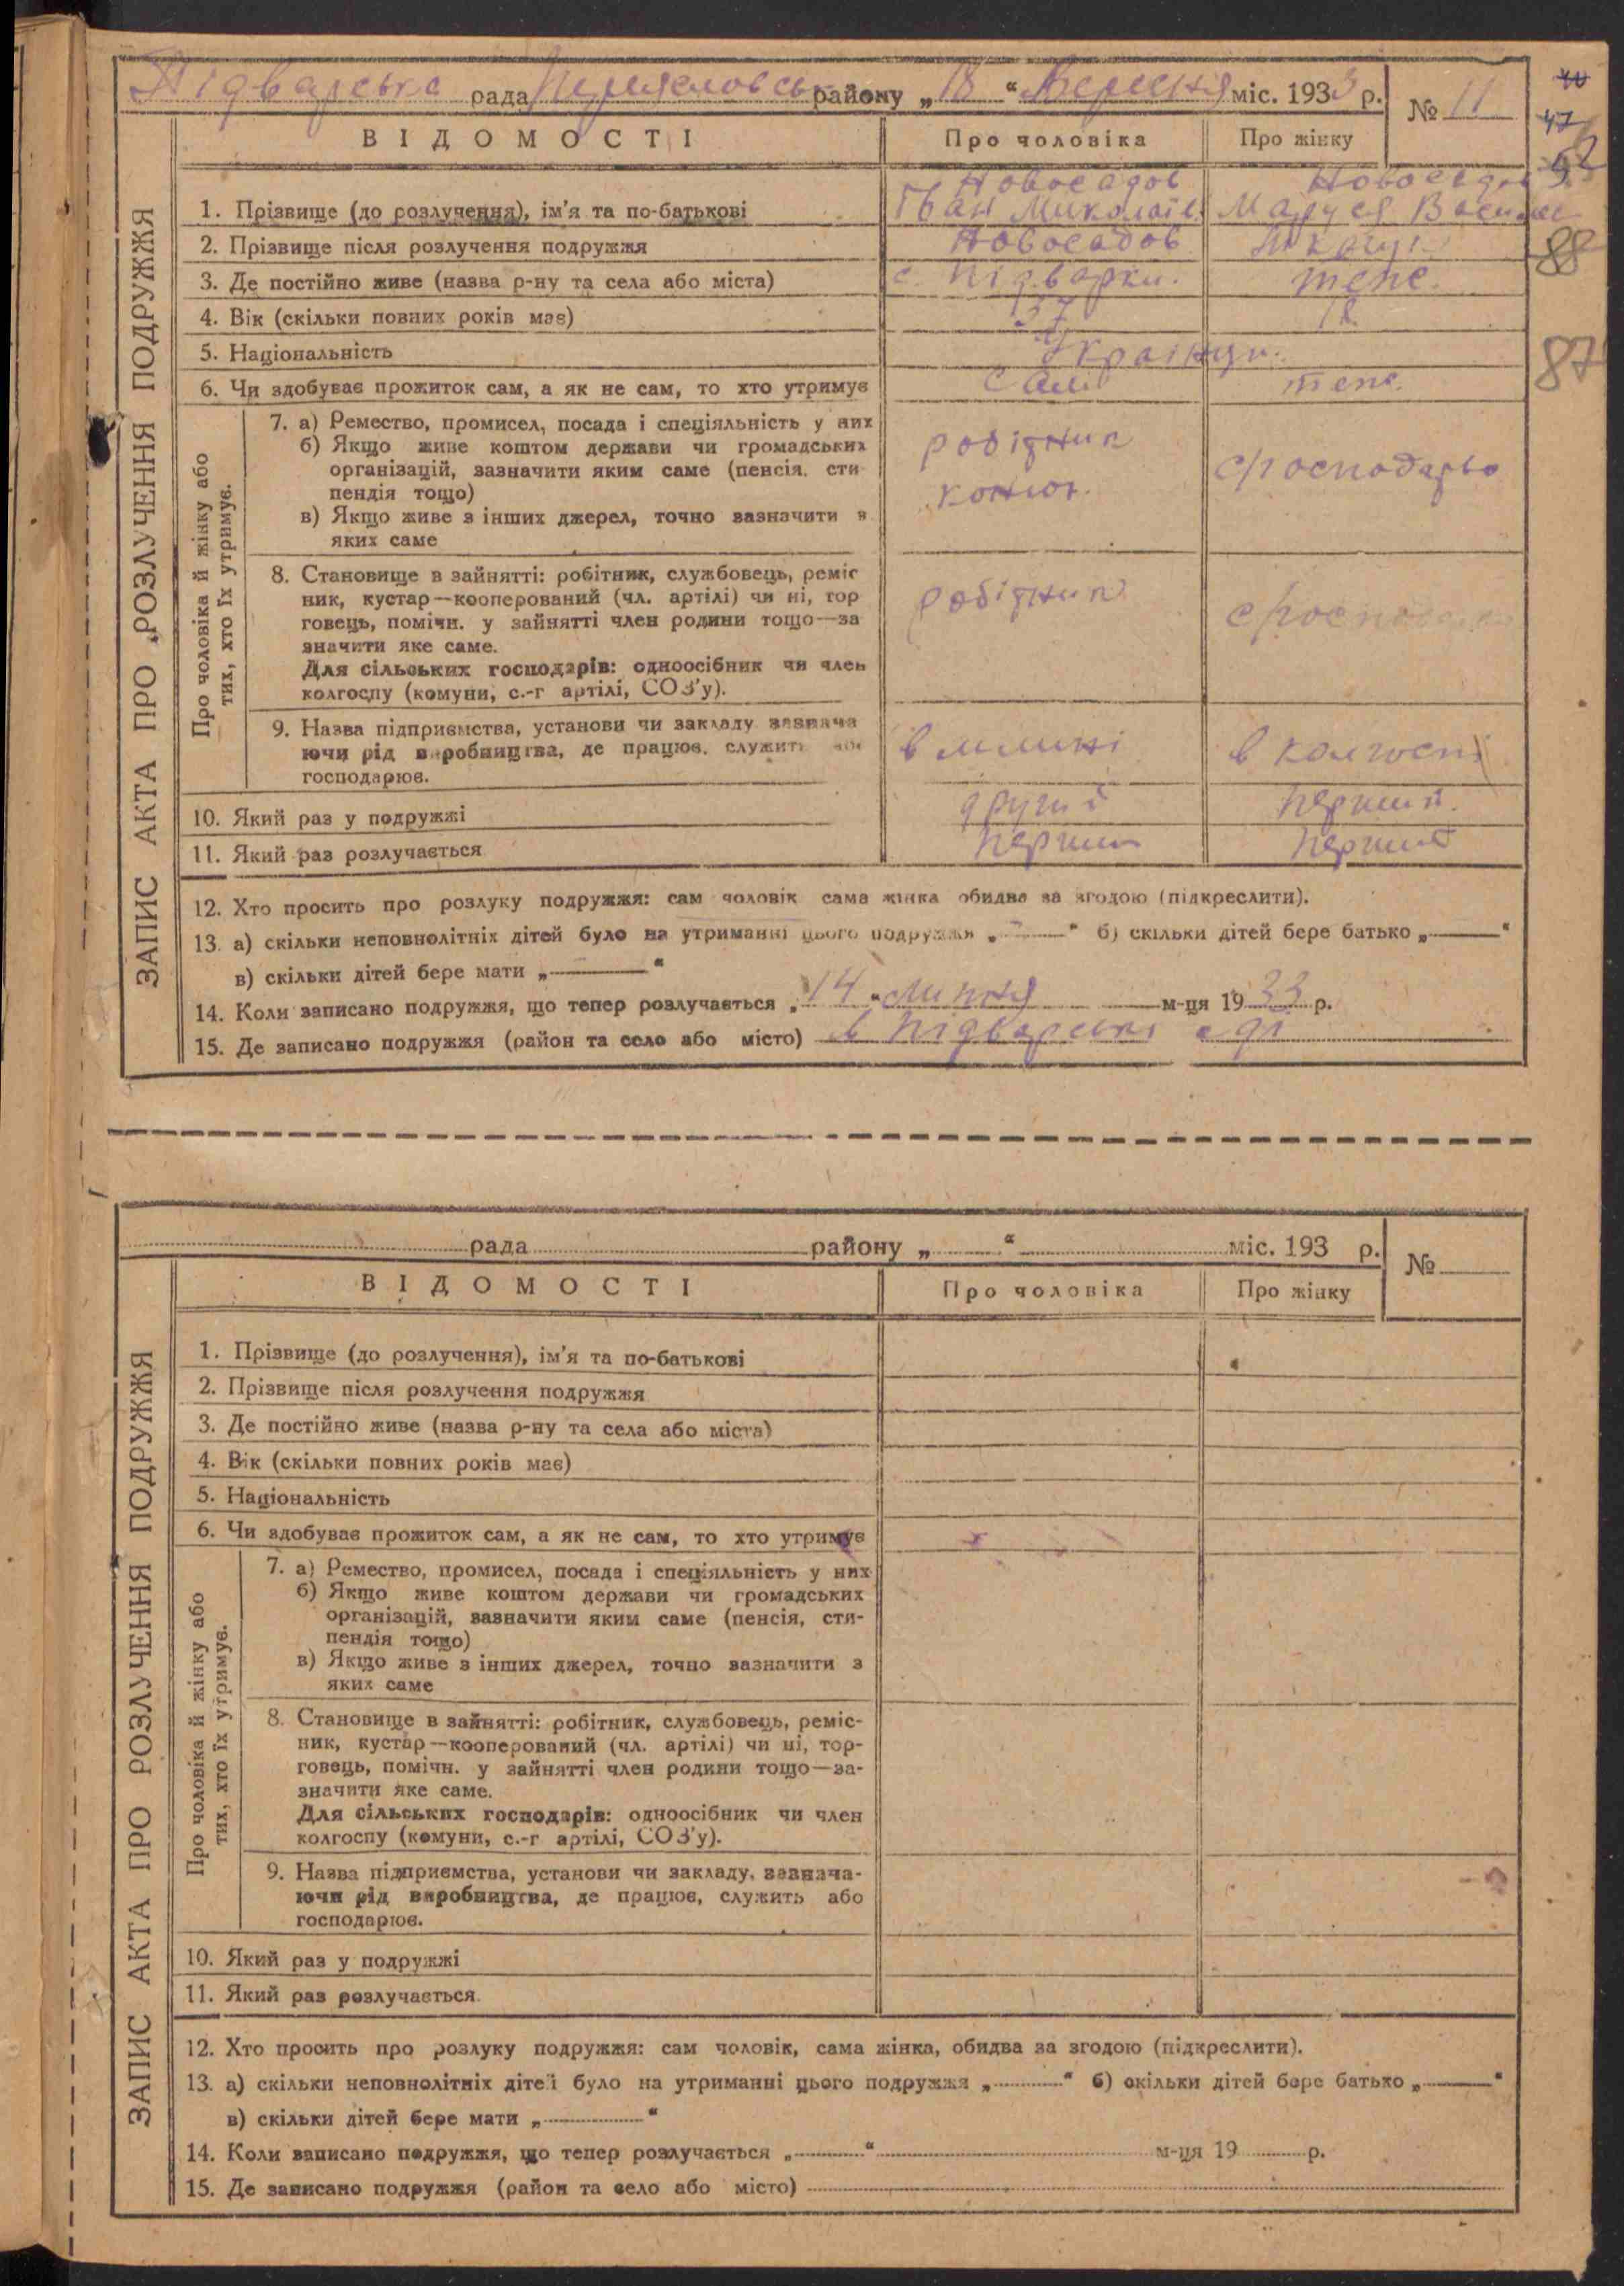 Підварська рада Переяславськ району „18“ Вересня міс. 1933 р. № 11
40
47
ВІДОМОСТІ Про чоловіка Про жінку
ЗАПИС АКТА ПРО РОЗЛУЧЕННЯ ПОДРУЖЖЯ
1. Прізвище (до розлучення), ім'я та по-батькові
Новосадов
Іван Миколаїв
Новосадов
Маруся Василів
2. Прізвище після розлучення подружжя Новосадов
88
3. Де постійно живе (назва р-ну та села або міста) с. Підварки. теж.
4. Вік (скільки повних років має) 37 18
5. Національність Українци.
87
6. Чи здобуває прожиток сам, а як не сам, то хто утримує Сам теж.
Про чоловіка й жінку або
тих, хто їх утримує.
7. а) Ремество, промисел, посада і спеціяльність у них
б) Якщо живе коштом держави чи громадських
організацій, зазначити яким саме (пенсія, сти
пендія тощо)
в) Якщо живе з інших джерел, точно зазначити з
яких саме
робітник
конюх.
с/господарво
8. Становище в зайнятті: робітник, службовець, реміс
ник, кустар—кооперований (чл. артілі) чи ні, тор
говець, помічн. у зайнятті член родини тощо—за
значити яке саме.
Для сільських господарів: одноосібник чи член
колгоспу (комуни, с.-г артілі, СОЗ'у).
робітник
9. Назва підприємства, установи чи закладу зазнача
ючи рід виробництва, де працює, служить або
господарює.
в млині
в колгоспі
10. Який раз у подружжі другий перший.
11. Який раз розлучається перший перший
12. Хто просить про розлуку подружжя: сам чоловік сама жінка обидва за згодою (підкреслити).
13. а) скільки неповнолітніх дітей було на утриманні цього подружжя „ “ б) скільки дітей бере батько „ “
в) скільки дітей бере мати „ “
14. Коли записано подружжя, що тепер розлучається „14“ Липня м-ця 1933 р.
15. Де записано подружжя (район та село або місто) в Підварські с/рі
рада району „ “ міс. 193 р. №
ВІДОМОСТІ Про чоловіка Про жінку
ЗАПИС АКТА ПРО РОЗЛУЧЕННЯ ПОДРУЖЖЯ
1. Прізвище (до розлучення), ім'я та по-батькові
2. Прізвище після розлучення подружжя
3. Де постійно живе (назва р-ну та села або міста)
4. Вік (скільки повних років має)
5. Національність
6. Чи здобуває прожиток сам, а як не сам, то хто утримує
Про чоловіка й жінку або
тих, хто їх утримує.
7. а) Ремество, промисел, посада і спеціяльність у них
б) Якщо живе коштом держави чи громадських
організацій, зазначити яким саме (пенсія, сти-
пендія тощо)
в) Якщо живе з інших джерел, точно зазначити з
яких саме
8. Становище в зайнятті: робітник, службовець, реміс-
ник, кустар—кооперований (чл. артілі) чи ні, тор-
говець, помічн. у зайнятті член родини тощо—за-
значити яке саме.
Для сільських господарів: одноосібник чи член
колгоспу (комуни, с.-г артілі, СОЗ'у).
9. Назва підприємства, установи чи закладу, зазнача-
ючи рід виробництва, де працює, служить або
господарює.
10. Який раз у подружжі
11. Який раз розлучається
12. Хто просить про розлуку подружжя: сам чоловік, сама жінка, обидва за згодою (підкреслити).
13. а) скільки неповнолітніх дітей було на утриманні цього подружжя „ “ б) скільки дітей бере батько „ “
в) скільки дітей бере мати „ “
14. Коли записано подружжя, що тепер розлучається „ “ м-ця 19 р.
15. Де записано подружжя (район та село або місто)